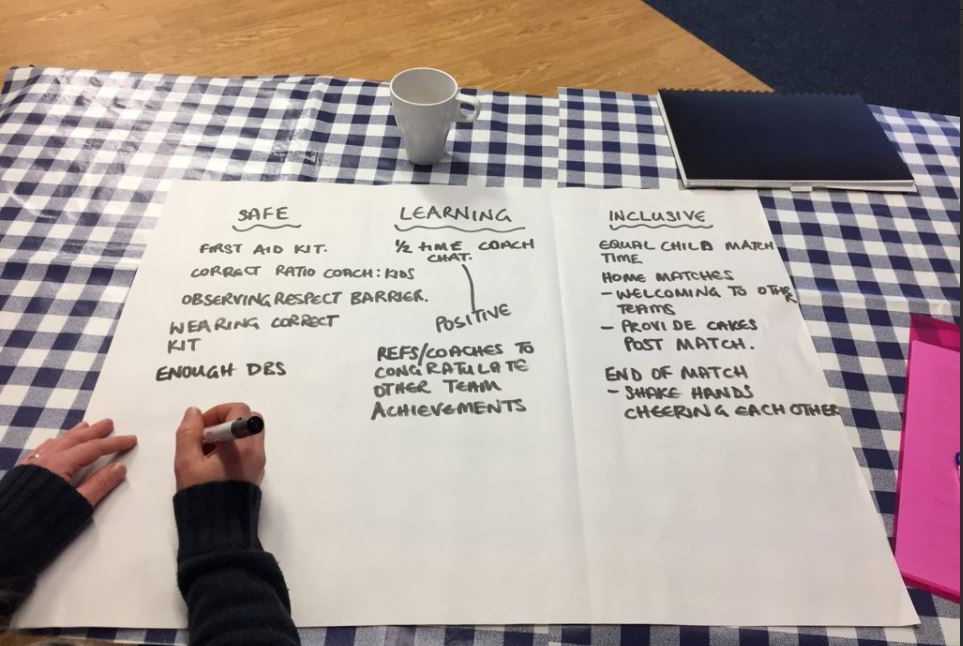 SAFE
FIRST AID KIT.
CORRECT RATIO COACH: KIDS
OBSERVING RESPECT BARRIER.
WEARING CORRECT
KIT
ENOUGH DBS
LEARNING
1/2 TIME COACH
CHAT.
POSITIVE
REFS/COACHES TO
CONGRATULATE
OTHER TEAM
ACHIEVEMENTS
INCLUSIVE
EQUAL CHILD MATCH
TIME
HOME MATCHES
- WELCOMING TO OTHER
TEAMS
- PROVIDE CAKES
POST MATCH.
END OF MATCH
- SHAKE HANDS
CHEERING EACH OTHER